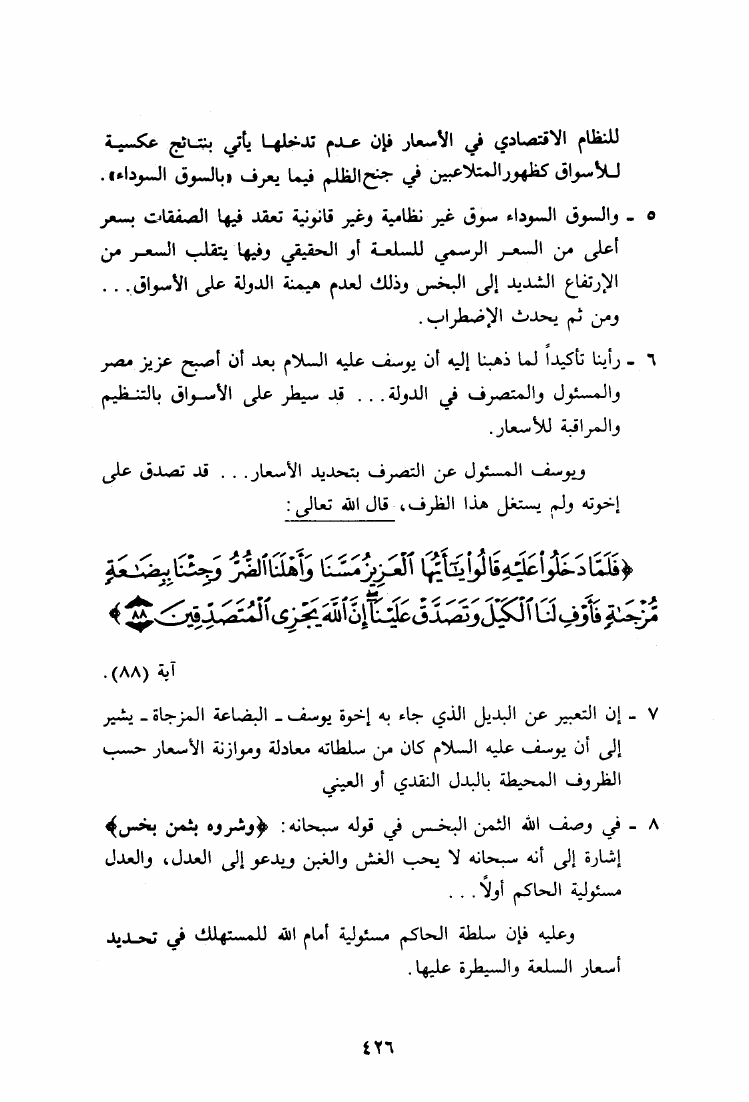 للنظام الاقتصادي في الأسعار فإن عدم تدخلها يأتي بنتائج عكسية
للأسواق كظهور المتلاعبين في جنح الظلم فيما يعرف «بالسوق السوداء».
٥ - والسوق السوداء سوق غير نظامية وغير قانونية تعقد فيها الصفقات بسعر
أعلى من السعر الرسمي للسلعة أو الحقيقي وفيها يتقلب السعر من
الإرتفاع الشديد إلى البخس وذلك لعدم هيمنة الدولة على الأسواق...
ومن ثم يحدث الإضطراب.
٦ - رأينا تأكيداً لما ذهبنا إليه أن يوسف عليه السلام بعد أن أصبح عزيز مصر
والمسئول والمتصرف في الدولة... قد سيطر على الأسواق بالتنظيم
والمراقبة للأسعار.
ويوسف المسئول عن التصرف بتحديد الأسعار... قد تصدق على
إخوته ولم يستغل هذا الظرف، قال الله تعالى:
﴿فَلَمَّا دَخَلُوا۟ عَلَيْهِ قَالُوا۟ يَٰٓأَيُّهَا ٱلْعَزِيزُ مَسَّنَا وَأَهْلَنَا ٱلضُّرُّ وَجِئْنَا بِبِضَٰعَةٍ
مُّزْجَىٰةٍ فَأَوْفِ لَنَا ٱلْكَيْلَ وَتَصَدَّقْ عَلَيْنَآ ۖ إِنَّ ٱللَّهَ يَجْزِى ٱلْمُتَصَدِّقِينَ ٨٨﴾
آية (٨٨).
٧ - إن التعبير عن البديل الذي جاء به إخوة يوسف - البضاعة المزجاة - يشير
إلى أن يوسف عليه السلام كان من سلطاته معادلة وموازنة الأسعار حسب
الظروف المحيطة بالبدل النقدي أو العيني
٨ - في وصف الله الثمن البخس في قوله سبحانه: ﴿وشروه بثمن بخس﴾
إشارة إلى أنه سبحانه لا يحب الغش والغبن ويدعو إلى العدل، والعدل
مسئولية الحاكم أولاً...
وعليه فإن سلطة الحاكم مسئولية أمام الله للمستهلك في تحديد
أسعار السلعة والسيطرة عليها.
٤٢٦